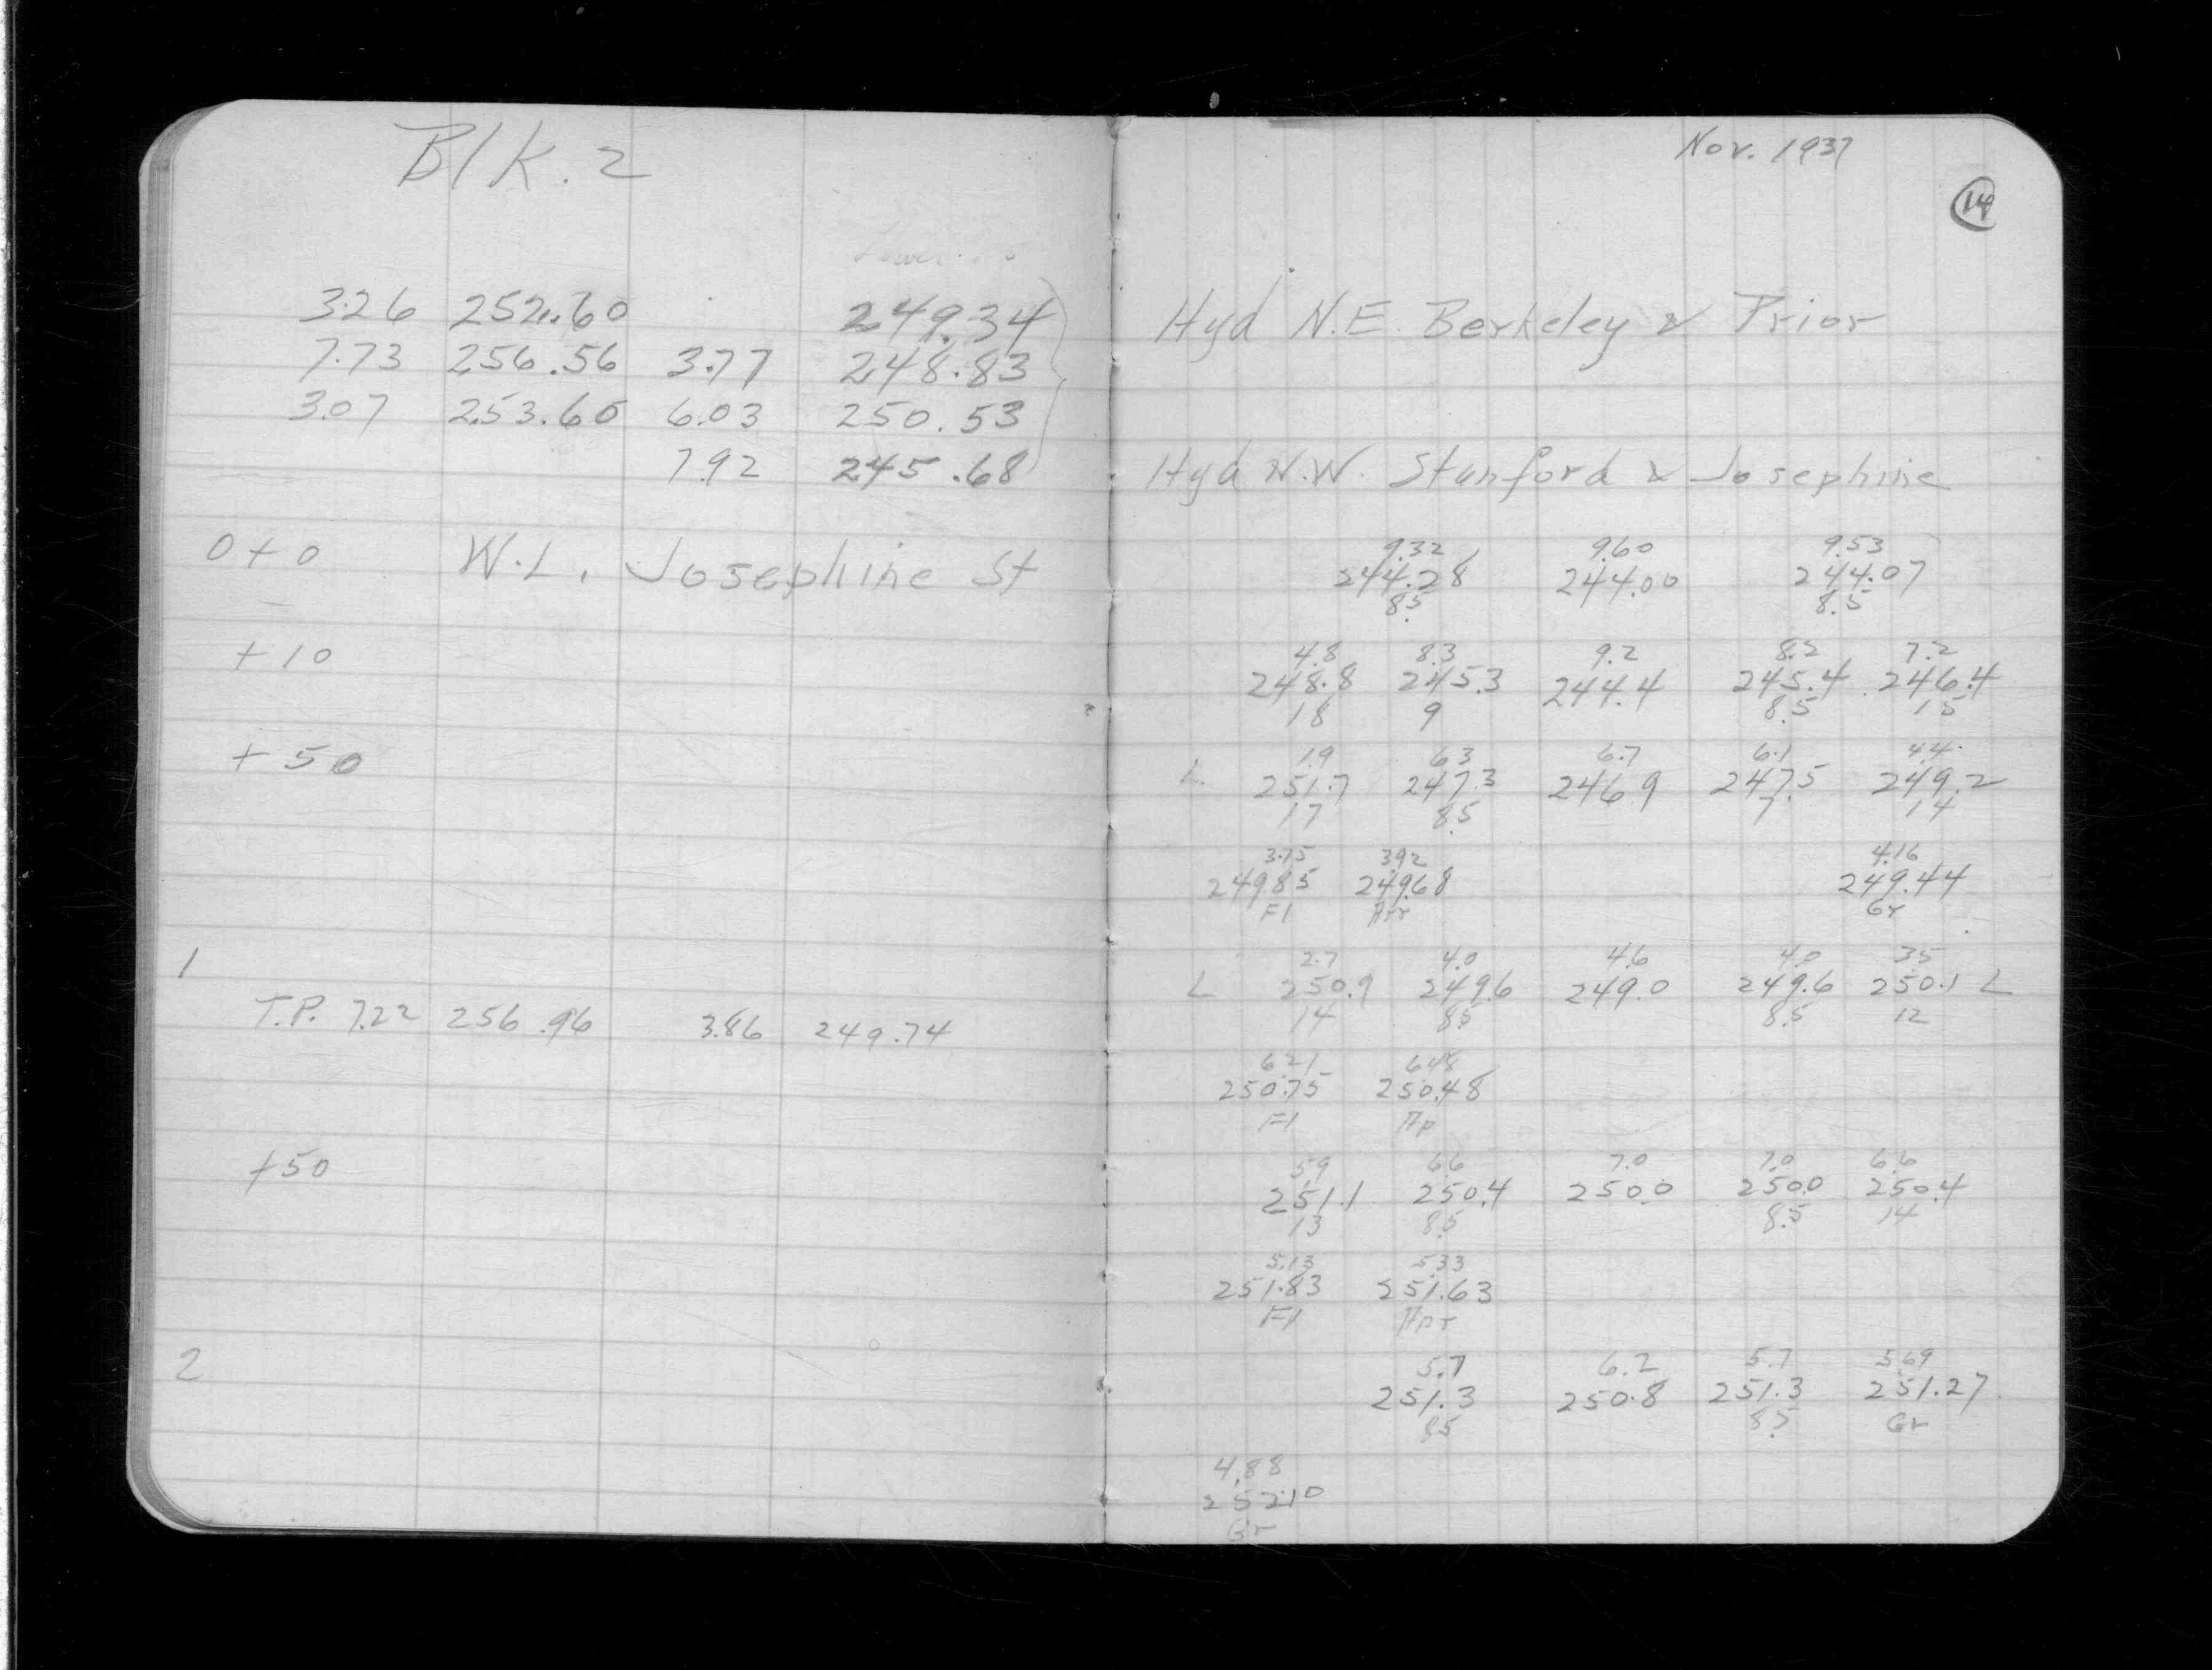 Blk. 2
3.26 252.60 249.34
7.73 256.56 3.77 248.83
3.07 253.60 6.03 250.53
7.92 245.68
0+0 W.L. Josephine St
+10
+50
1
T.P. 7.22 256.96 3.86 249.74
+50
2
Nov. 1937
14
Hyd N.E. Berkeley & Prior
Hyd N.W. Stanford & Josephine
9.32 9.60 9.53
244.28 244.00 244.07
8.5 8.5
4.8 8.3 9.2 8.2 7.2
248.8 245.3 244.4 245.4 246.4
18 9 8.5 15
1.9 6.3 6.7 6.1 4.4
L. 251.7 247.3 246.9 247.5 249.2
17 8.5 7 14
3.75 3.92 4.16
249.85 249.68 249.44
Fl Apr Gr
2.7 4.0 4.6 4.0 3.5
L 250.9 249.6 249.0 249.6 250.1 L
14 8.5 8.5 12
6.21 6.48
250.75 250.48
Fl Ap
5.9 6.6 7.0 7.0 6.6
251.1 250.4 250.0 250.0 250.4
13 8.5 8.5 14
5.13 5.33
251.83 251.63
Fl Apr
5.7 6.2 5.7 5.69
251.3 250.8 251.3 251.27
8.5 8.5 Gr
4.88
252.10
Gr